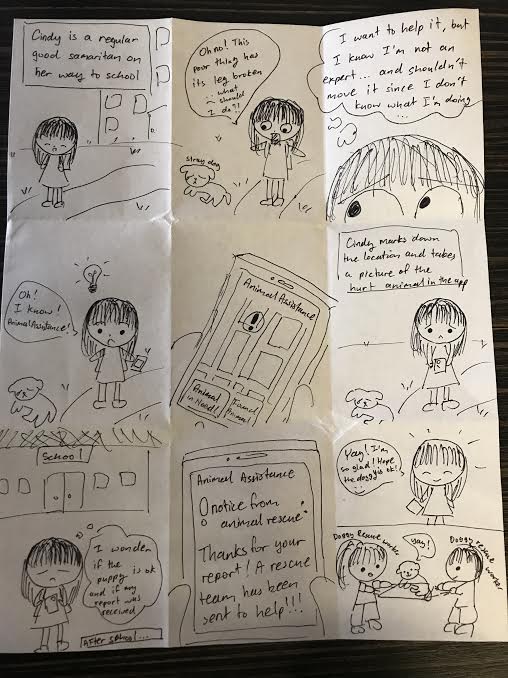 Cindy is a regular
good samaritan on
her way to school
Oh no! This
poor thing has
its leg broken
... what
should
I do?!
stray dog
I want to help it, but
I know I'm not an
expert... and shouldn't
move it since I don't
know what I'm doing...
Oh!
I know!
Animal Assistance!
Animal Assistance
!
Animal
in Need!
Found
Animal
Cindy marks down
the location and takes
a picture of the
hurt animal in the app
School
I wonder
if the
puppy is ok
and if my
report was
received
After school...
Animal Assistance
! notice from
animal rescue:
Thanks for your
report! A rescue
team has been
sent to help!!!
Yay! I'm
so glad! Hope
the doggy is ok!
Doggy Rescue worker
yay!
Doggy rescue
worker